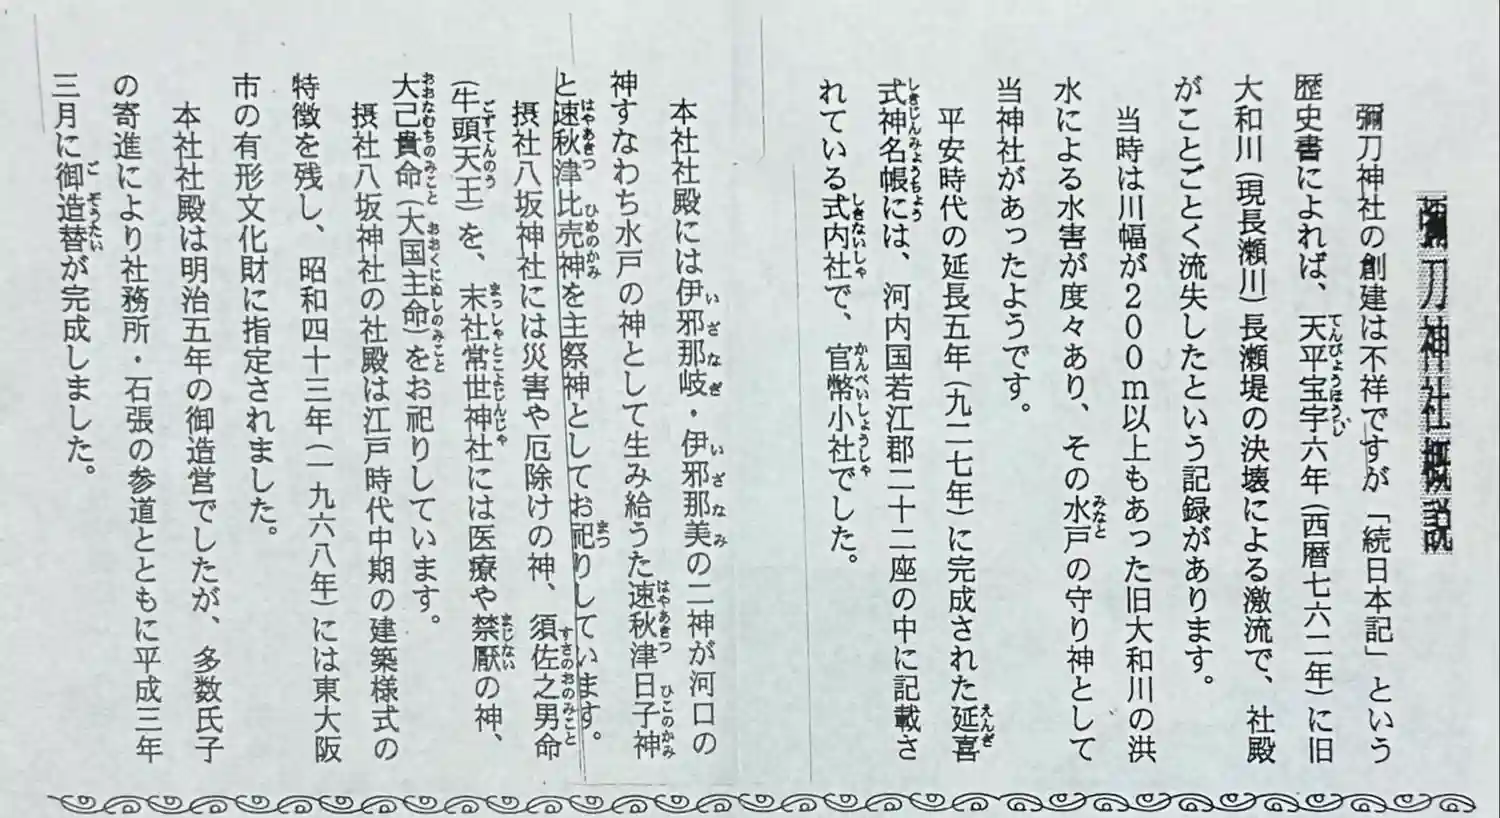 彌刀神社概説
彌刀神社の創建は不祥ですが「続日本記」という
歴史書によれば、天平宝宇六年(西暦七六二年)に旧
大和川(現長瀬川)長瀬堤の決壊による激流で、社殿
がことごとく流失したという記録があります。
当時は川幅が200m以上もあった旧大和川の洪
水による水害が度々あり、その水戸の守り神として
当神社があったようです。
平安時代の延長五年(九二七年)に完成された延喜
式神名帳には、河内国若江郡二十二座の中に記載さ
れている式内社で、官幣小社でした。
本社社殿には伊邪那岐・伊邪那美の二神が河口の
神すなわち水戸の神として生み給うた速秋津日子神
と速秋津比売神を主祭神としてお祀りしています。
摂社八坂神社には災害や厄除けの神、須佐之男命
(牛頭天王)を、末社常世神社には医療や禁厭の神、
大己貴命(大国主命)をお祀りしています。
摂社八坂神社の社殿は江戸時代中期の建築様式の
特徴を残し、昭和四十三年(一九六八年)には東大阪
市の有形文化財に指定されました。
本社社殿は明治五年の御造営でしたが、多数氏子
の寄進により社務所・石張の参道とともに平成三年
三月に御造替が完成しました。